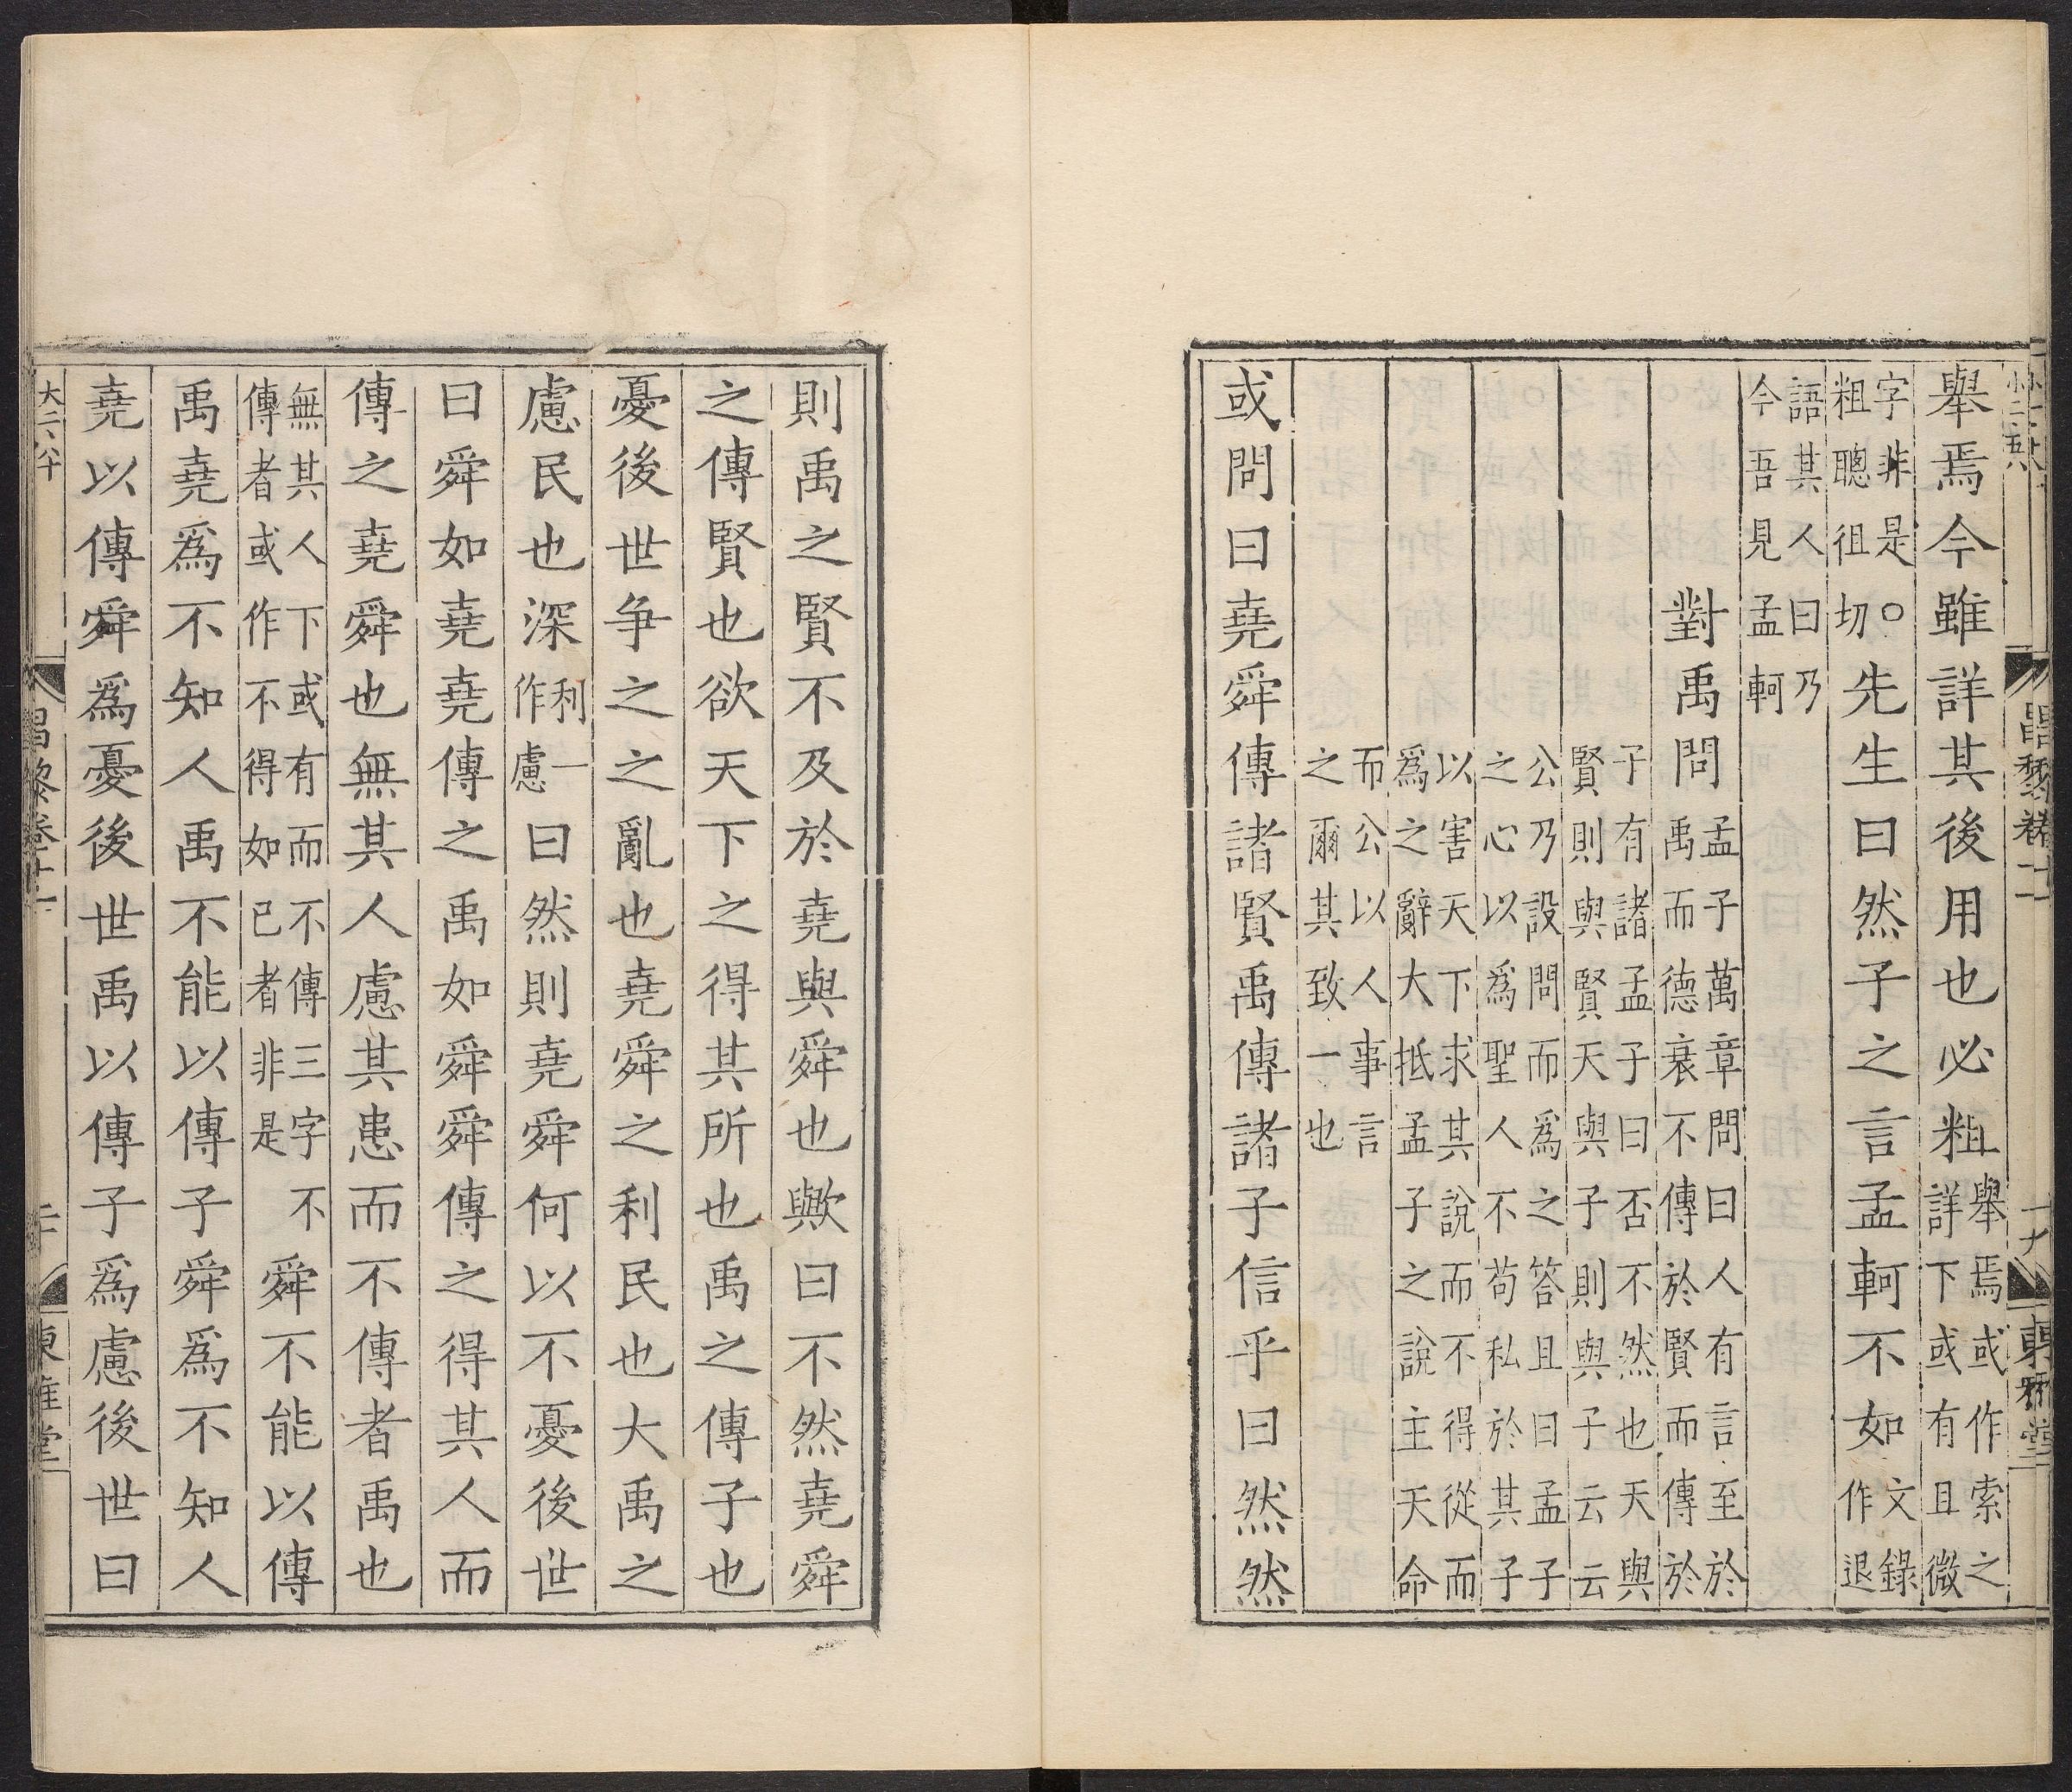 舉焉今雖詳其後用也必粗舉焉或作索之詳下或有且微
字非是○粗聰徂切先生曰然子之言孟軻不如文錄作退
語其人曰乃今吾見孟軻
對禹問孟子萬章問曰人有言至於禹而德衰不傳於賢而傳於
子有諸孟子曰否不然也天與賢則與賢天與子則與子云云
公乃設問而爲之答且曰孟子之心以爲聖人不苟私於其子
以害天下求其說而不得從而爲之辭大抵孟子之說主天命
而公以人事言之爾其致一也
或問曰堯舜傳諸賢禹傳諸子信乎曰然然
昌黎卷十一
十九
東雅堂
則禹之賢不及於堯與舜也歟曰不然堯舜
之傳賢也欲天下之得其所也禹之傳子也
憂後世争之之亂也堯舜之利民也大禹之
慮民也深利一作慮曰然則堯舜何以不憂後世
曰舜如堯堯傳之禹如舜舜傳之得其人而
傳之堯舜也無其人慮其患而不傳者禹也
無其人下或有而不傳三字不傳者或作不得如已者非是舜不能以傳
禹堯爲不知人禹不能以傳子舜爲不知人
堯以傳舜爲憂後世禹以傳子爲慮後世曰
昌黎卷十一
二十
東雅堂